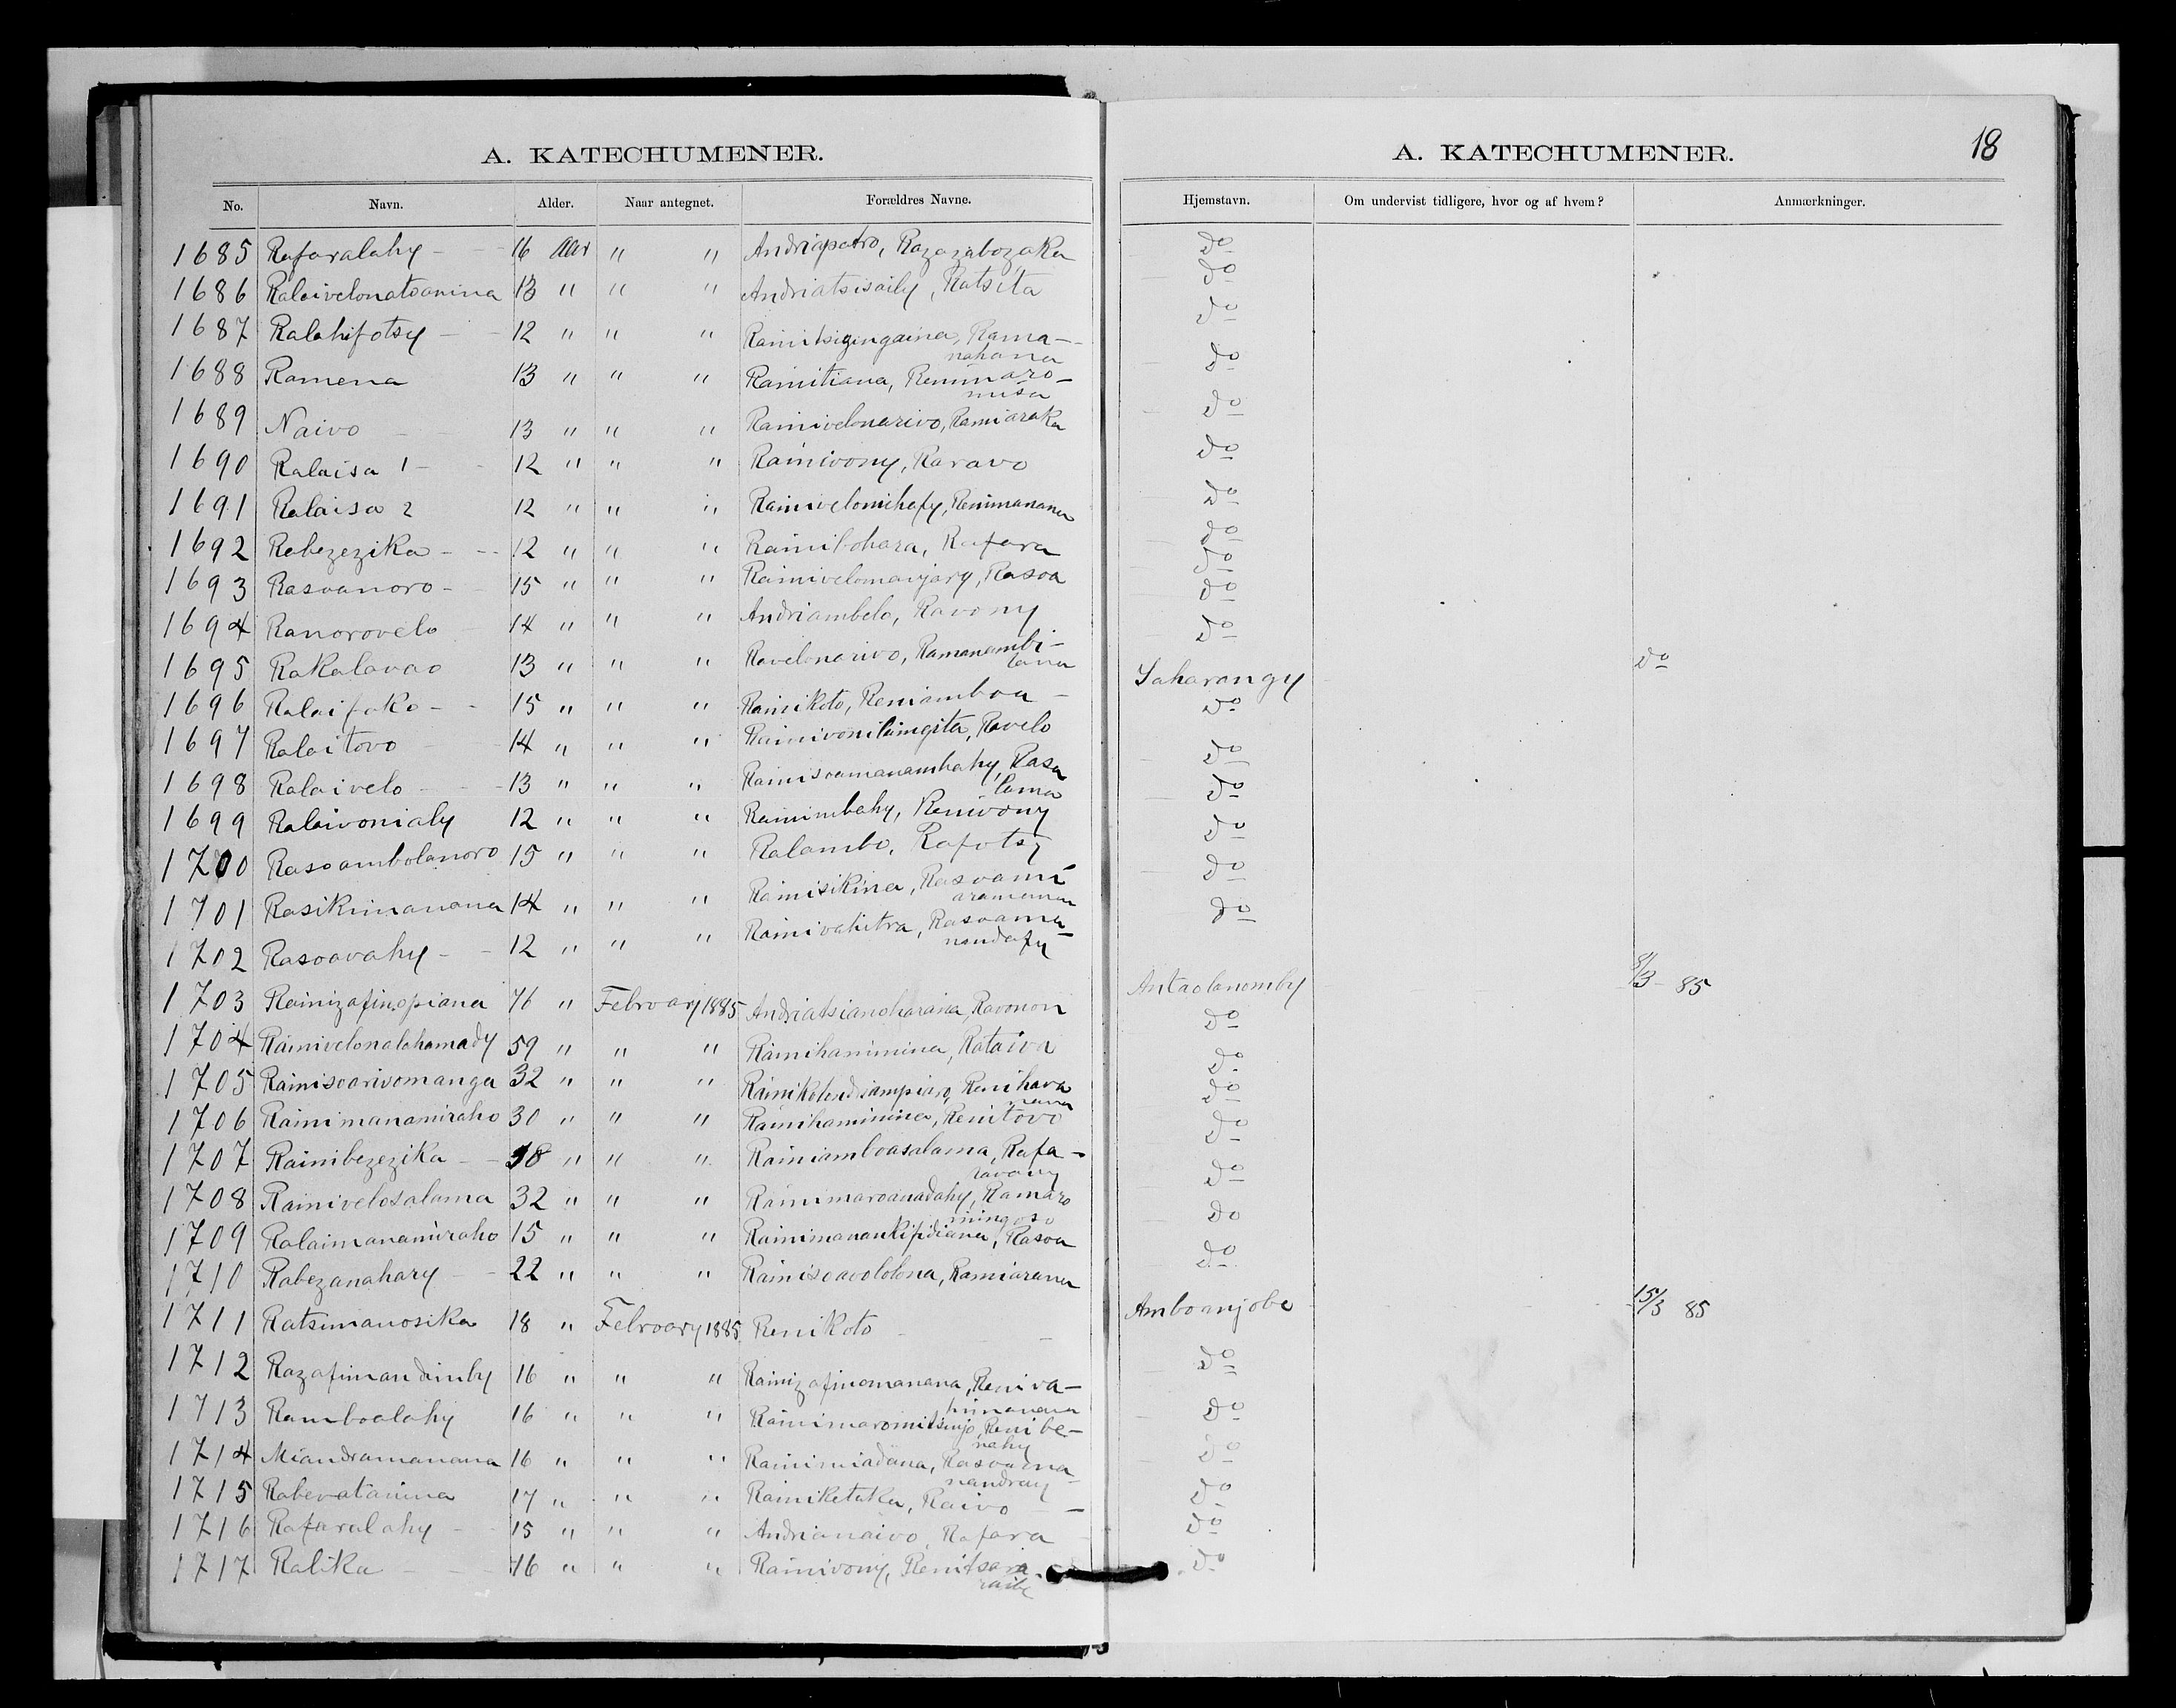 A. KATECHUMENER.
No. Navn. Alder. Naar antegnet. Forældres Navne.
1685 Rafaralahy - 16 Aar " " Andriapatro, Razazabozaka
1686 Ralaivelonatoanina 13 " " " Andriatsisaily, Ratsita
1687 Ralahifotsy - 12 " " " Rainitsizingaina, Rama-
nahana
1688 Ramena 13 " " " Rainitiana, Renimaro-
misa
1689 Naivo - 13 " " " Rainivelonarivo, Ramiaraka
1690 Ralaisa 1 - 12 " " " Rainivony, Raravo
1691 Ralaisa 2 12 " " " Rainivelomihafy, Renimanana
1692 Rabezezika - 12 " " " Rainibohara, Rafara
1693 Rasoanoro - 15 " " " Rainivelomanjary, Rasoa
1694 Ranorovelo 14 " " " Andriambelo, Ravony
1695 Rakalavao 13 " " " Ravelonarivo, Ramanambi-
lana
1696 Ralaifoko - 15 " " " Rainikoto, Reniamboa -
1697 Ralaitovo - 14 " " " Rainivonilaingita, Ravelo
1698 Ralaivelo - 13 " " " Rainisoamanambahy, Rasa
lama
1699 Ralaivonialy 12 " " " Rainimbahy, Renivony
1700 Rasoambolanoro 15 " " " Ralambo, Rafotsy
1701 Rasikimanana 14 " " " Rainisikina, Rasoami
aramanana
1702 Rasoavahy - 12 " " " Rainivahitra, Rasoama-
nandafy
1703 Rainizafinopiana 76 " February 1885 Andriatsianoharana, Ravonon
1704 Rainivelonalahamady 59 " " " Rainihaminina, Rataiva
1705 Rainisoarivomanga 32 " " " Renihava
nana
1706 Rainimanamiraho 30 " " " Rainihaminina, Renitovo
1707 Rainibezezika - 38 " " " Rainiamboasalama, Rafa-
ravony
1708 Rainivelosalama 32 " " " Rainimaroanadahy, Ramaro
mingoso
1709 Ralaimanamiraho 15 " " " Rainimanankifidiana, Rasoa
1710 Rabezanahary - 22 " " " Rainisoavololona, Ramiarana
1711 Ratsimanosika 18 " February 1885 Renikoto -
1712 Razafimandimby 16 " " " Rainizafinomanana, Reniva-
hinanana
1713 Ramboalahy 16 " " " Rainimaromitsinjo, Renibe-
nahy
1714 Miandramanana 16 " " " Rainimiadana, Rasoama-
nandray
1715 Rabevatanina 17 " " " Rainiketaka, Raivo -
1716 Rafaralahy - 15 " " " Andrianaivo, Rafara
1717 Ralika - 16 " " " Rainivony, Renitsara-
raily
A. KATECHUMENER. 18
Hjemstavn. Om undervist tidligere, hvor og af hvem? Anmærkninger.
do
do
do
do
do
do
do
do
do
do
do
Saharangy do
do
do
do
do
do
do
Antaolanomby 8/3 - 85
do
do
do
do
do
do
do
Amboanjobe 15/3 85
do
do
do
do
do
do